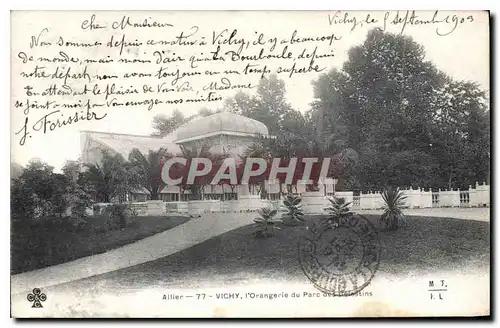 Cher Monsieur
Vichy, le 5 Septem 1903
Nous sommes depuis ce matin à Vichy, il y a beaucoup
de monde, mais moins d'air qu'à La Bourboule, depuis
notre départ, nous avons toujours eu un temps superbe
En attendant le plaisir de Vous Voir, Madame
se joint à moi pour Vous envoyer nos amitiés
J. Forissier
CARTHAPHILE
Allier — 77 - VICHY, l'Orangerie du Parc des Célestins
M T
I L